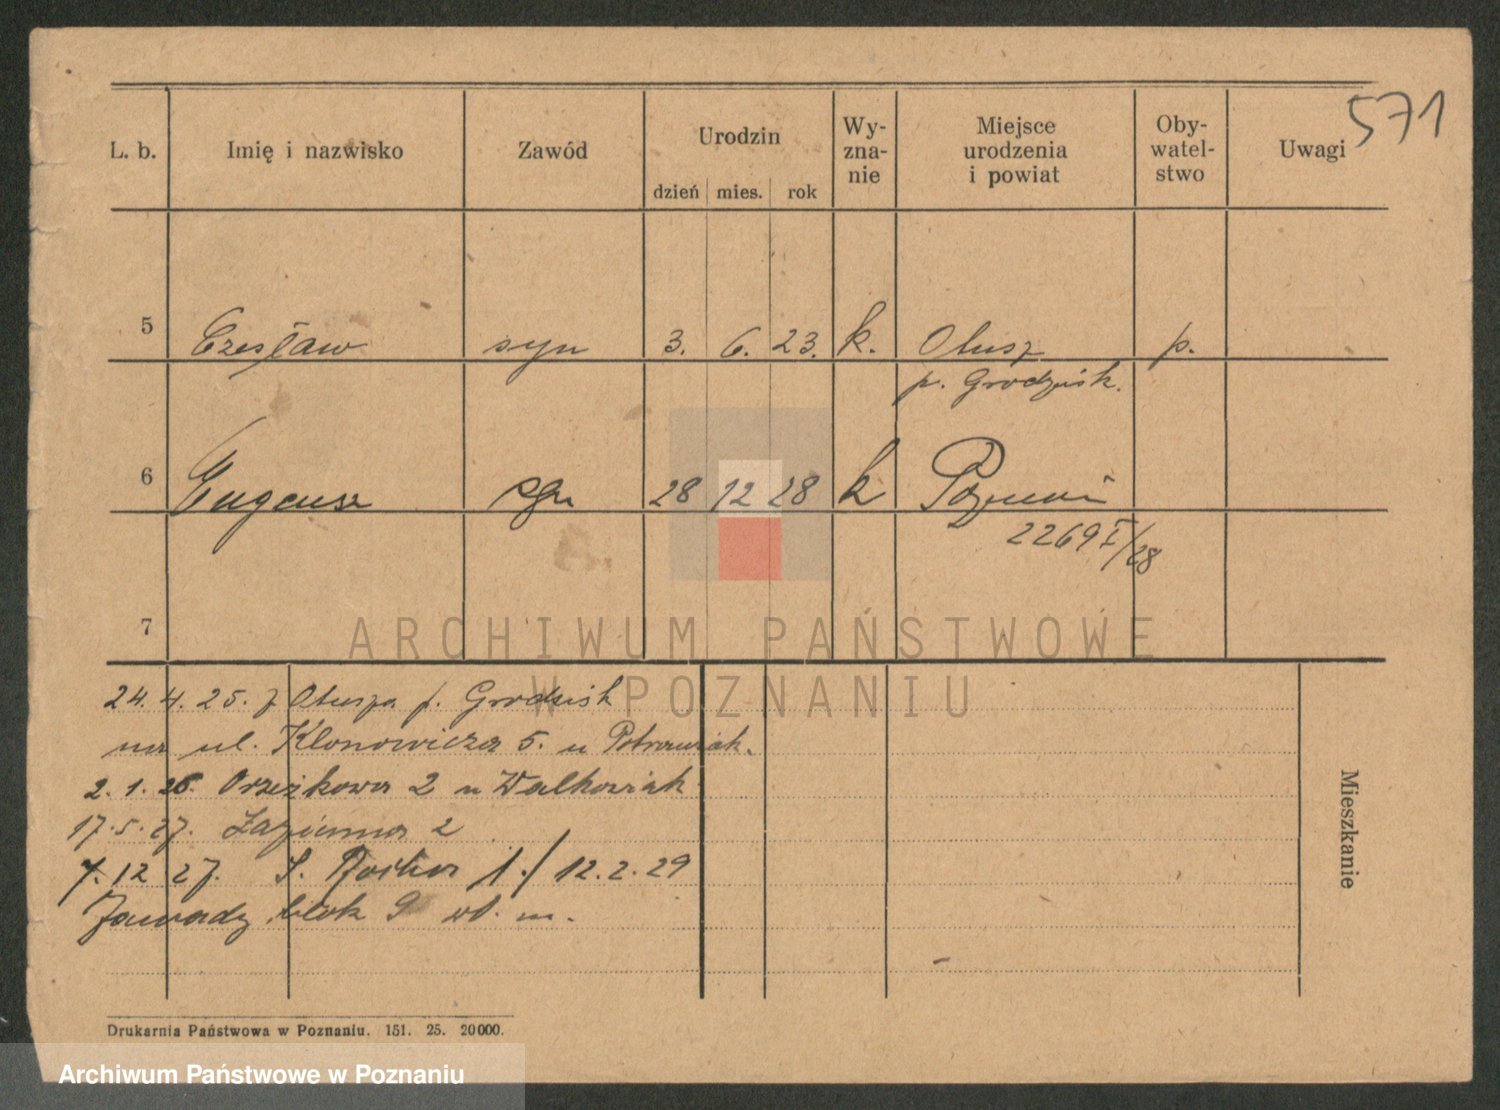 571
L. b. Imię i nazwisko Zawód Urodzin dzień mies. rok Wy-zna-nie Miejsce urodzenia i powiat Oby-watel-stwo Uwagi
5 Czesław syn 3. 6. 23. k. Otusz p.
p. Grodzisk.
6 Eugeusz syn 28 12 28 k Poznań
2269 I/28
7
ARCHIWUM PAŃSTWOWE
W POZNANIU
24. 4. 25. z Otusza p. Grodzisk
na ul. Klonowicza 5. u Potrawiak.
2. 1. 26. Orzeszkowa 2 u Walkowiak
17. 5. 27. Łazienna 2
7. 12 27. S. Rocha 1./ 12. 2. 29
Zawady blok 9 wł. m.
Mieszkanie
Drukarnia Państwowa w Poznaniu. 151. 25. 20000.
Archiwum Państwowe w Poznaniu